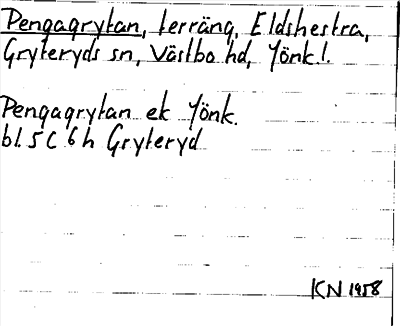 Pengagrytan, terräng, Eldshestra,
Gryteryds sn, Västbo hd, Jönk.l.
Pengagrytan ek Jönk.
bl. 5 C 6 h Gryteryd
KN 1958